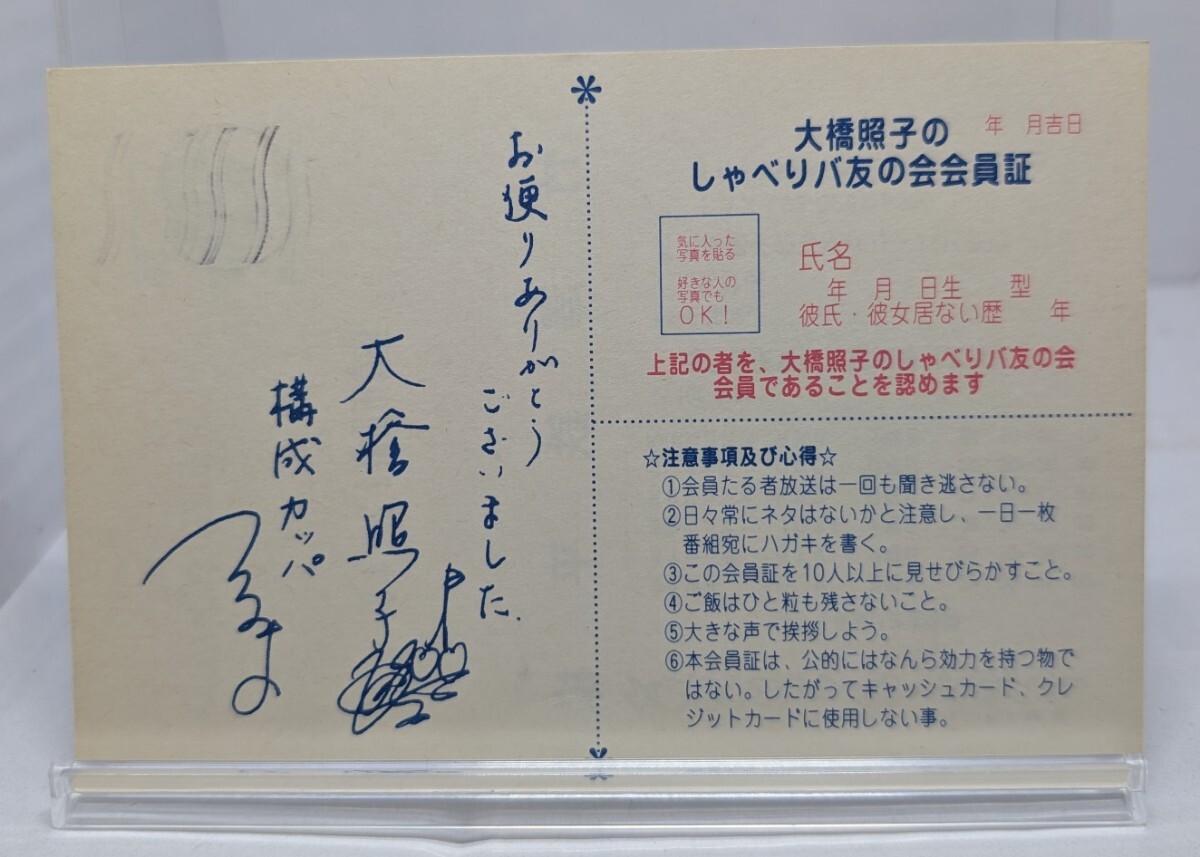 お便りありがとう
ございました.
大橋照子
構成カッパ
大橋照子の
年 月吉日
しゃべりバ友の会会員証
気に入った
写真を貼る
好きな人の
写真でも
OK!
氏名
年 月 日生 型
彼氏・彼女居ない歴 年
上記の者を、大橋照子のしゃべりバ友の会
会員であることを認めます
☆注意事項及び心得☆
①会員たる者放送は一回も聞き逃さない。
②日々常にネタはないかと注意し、一日一枚
番組宛にハガキを書く。
③この会員証を10人以上に見せびらかすこと。
④ご飯はひと粒も残さないこと。
⑤大きな声で挨拶しよう。
⑥本会員証は、公的にはなんら効力を持つ物で
はない。したがってキャッシュカード、クレ
ジットカードに使用しない事。